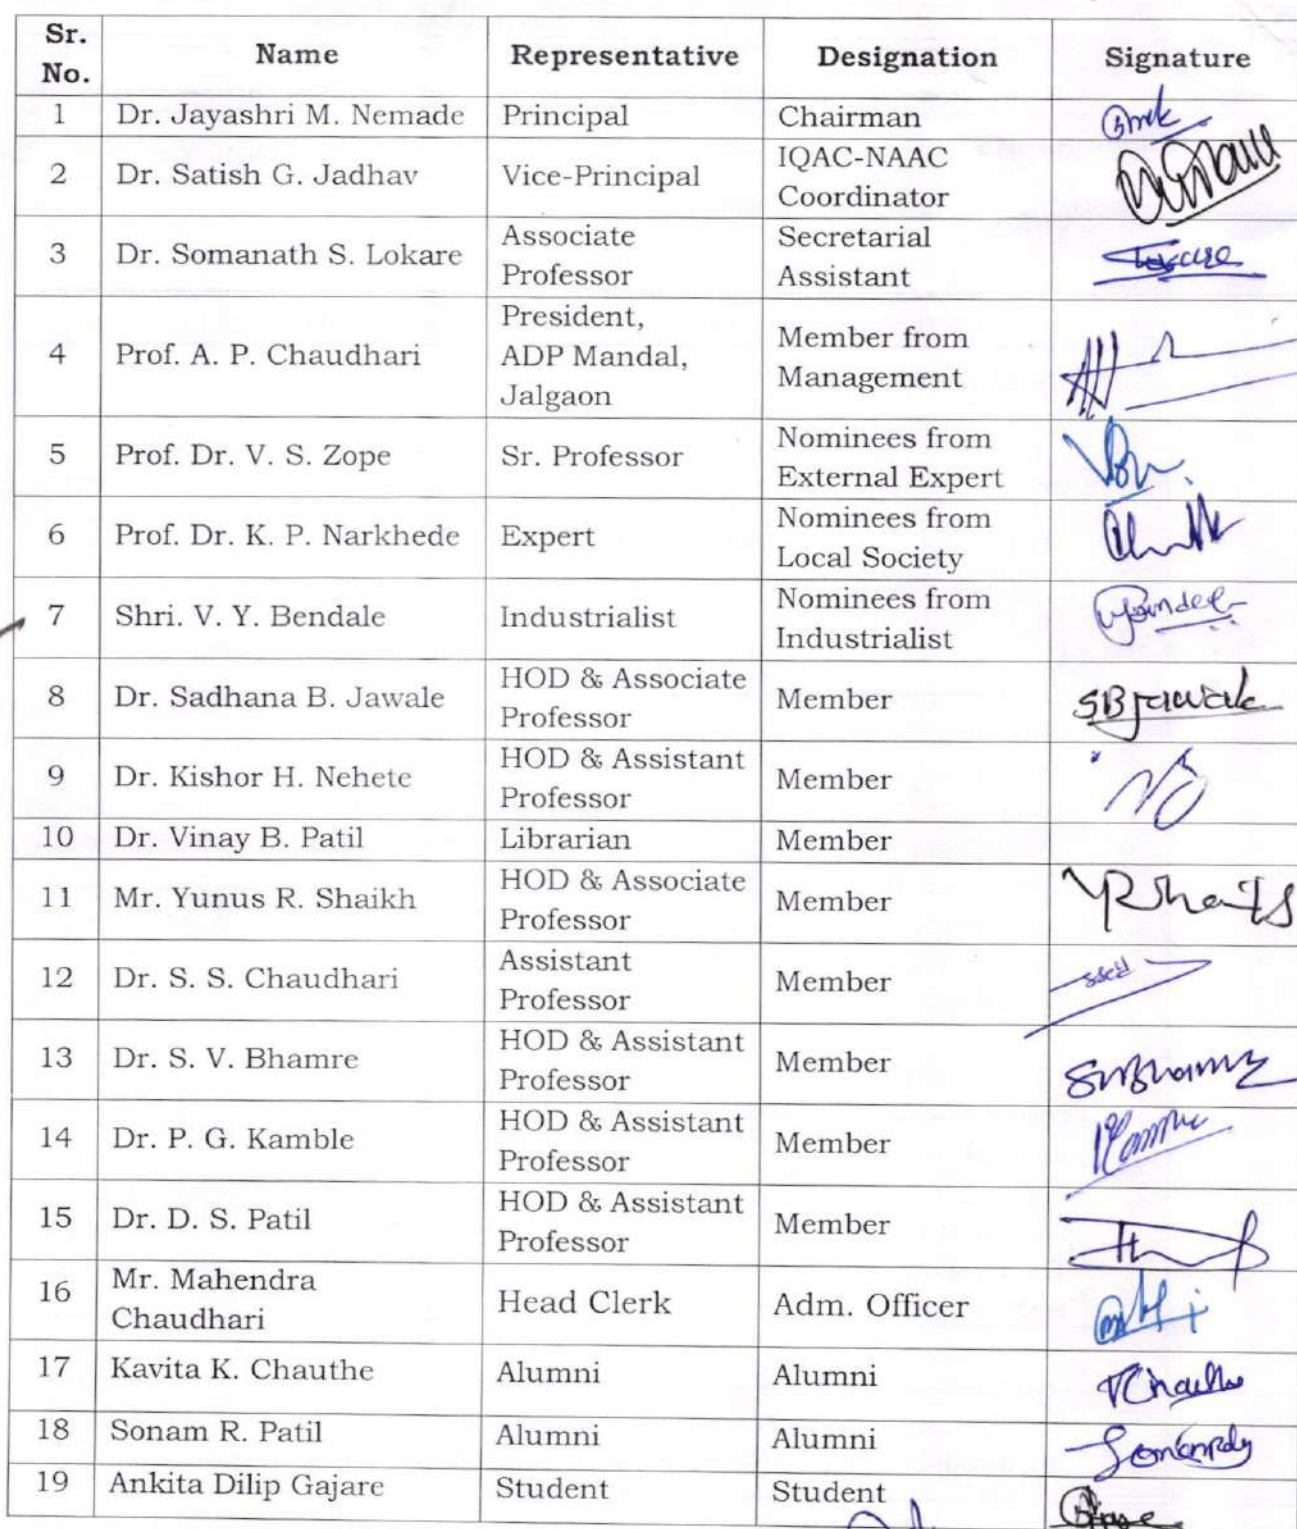 Sr. No. Name Representative Designation Signature
1 Dr. Jayashri M. Nemade Principal Chairman
2 Dr. Satish G. Jadhav Vice-Principal IQAC-NAAC Coordinator
3 Dr. Somanath S. Lokare Associate Professor Secretarial Assistant
4 Prof. A. P. Chaudhari President, ADP Mandal, Jalgaon Member from Management
5 Prof. Dr. V. S. Zope Sr. Professor Nominees from External Expert
6 Prof. Dr. K. P. Narkhede Expert Nominees from Local Society
7 Shri. V. Y. Bendale Industrialist Nominees from Industrialist
8 Dr. Sadhana B. Jawale HOD & Associate Professor Member SBJawale
9 Dr. Kishor H. Nehete HOD & Assistant Professor Member
10 Dr. Vinay B. Patil Librarian Member
11 Mr. Yunus R. Shaikh HOD & Associate Professor Member
12 Dr. S. S. Chaudhari Assistant Professor Member
13 Dr. S. V. Bhamre HOD & Assistant Professor Member
14 Dr. P. G. Kamble HOD & Assistant Professor Member
15 Dr. D. S. Patil HOD & Assistant Professor Member
16 Mr. Mahendra Chaudhari Head Clerk Adm. Officer
17 Kavita K. Chauthe Alumni Alumni
18 Sonam R. Patil Alumni Alumni
19 Ankita Dilip Gajare Student Student